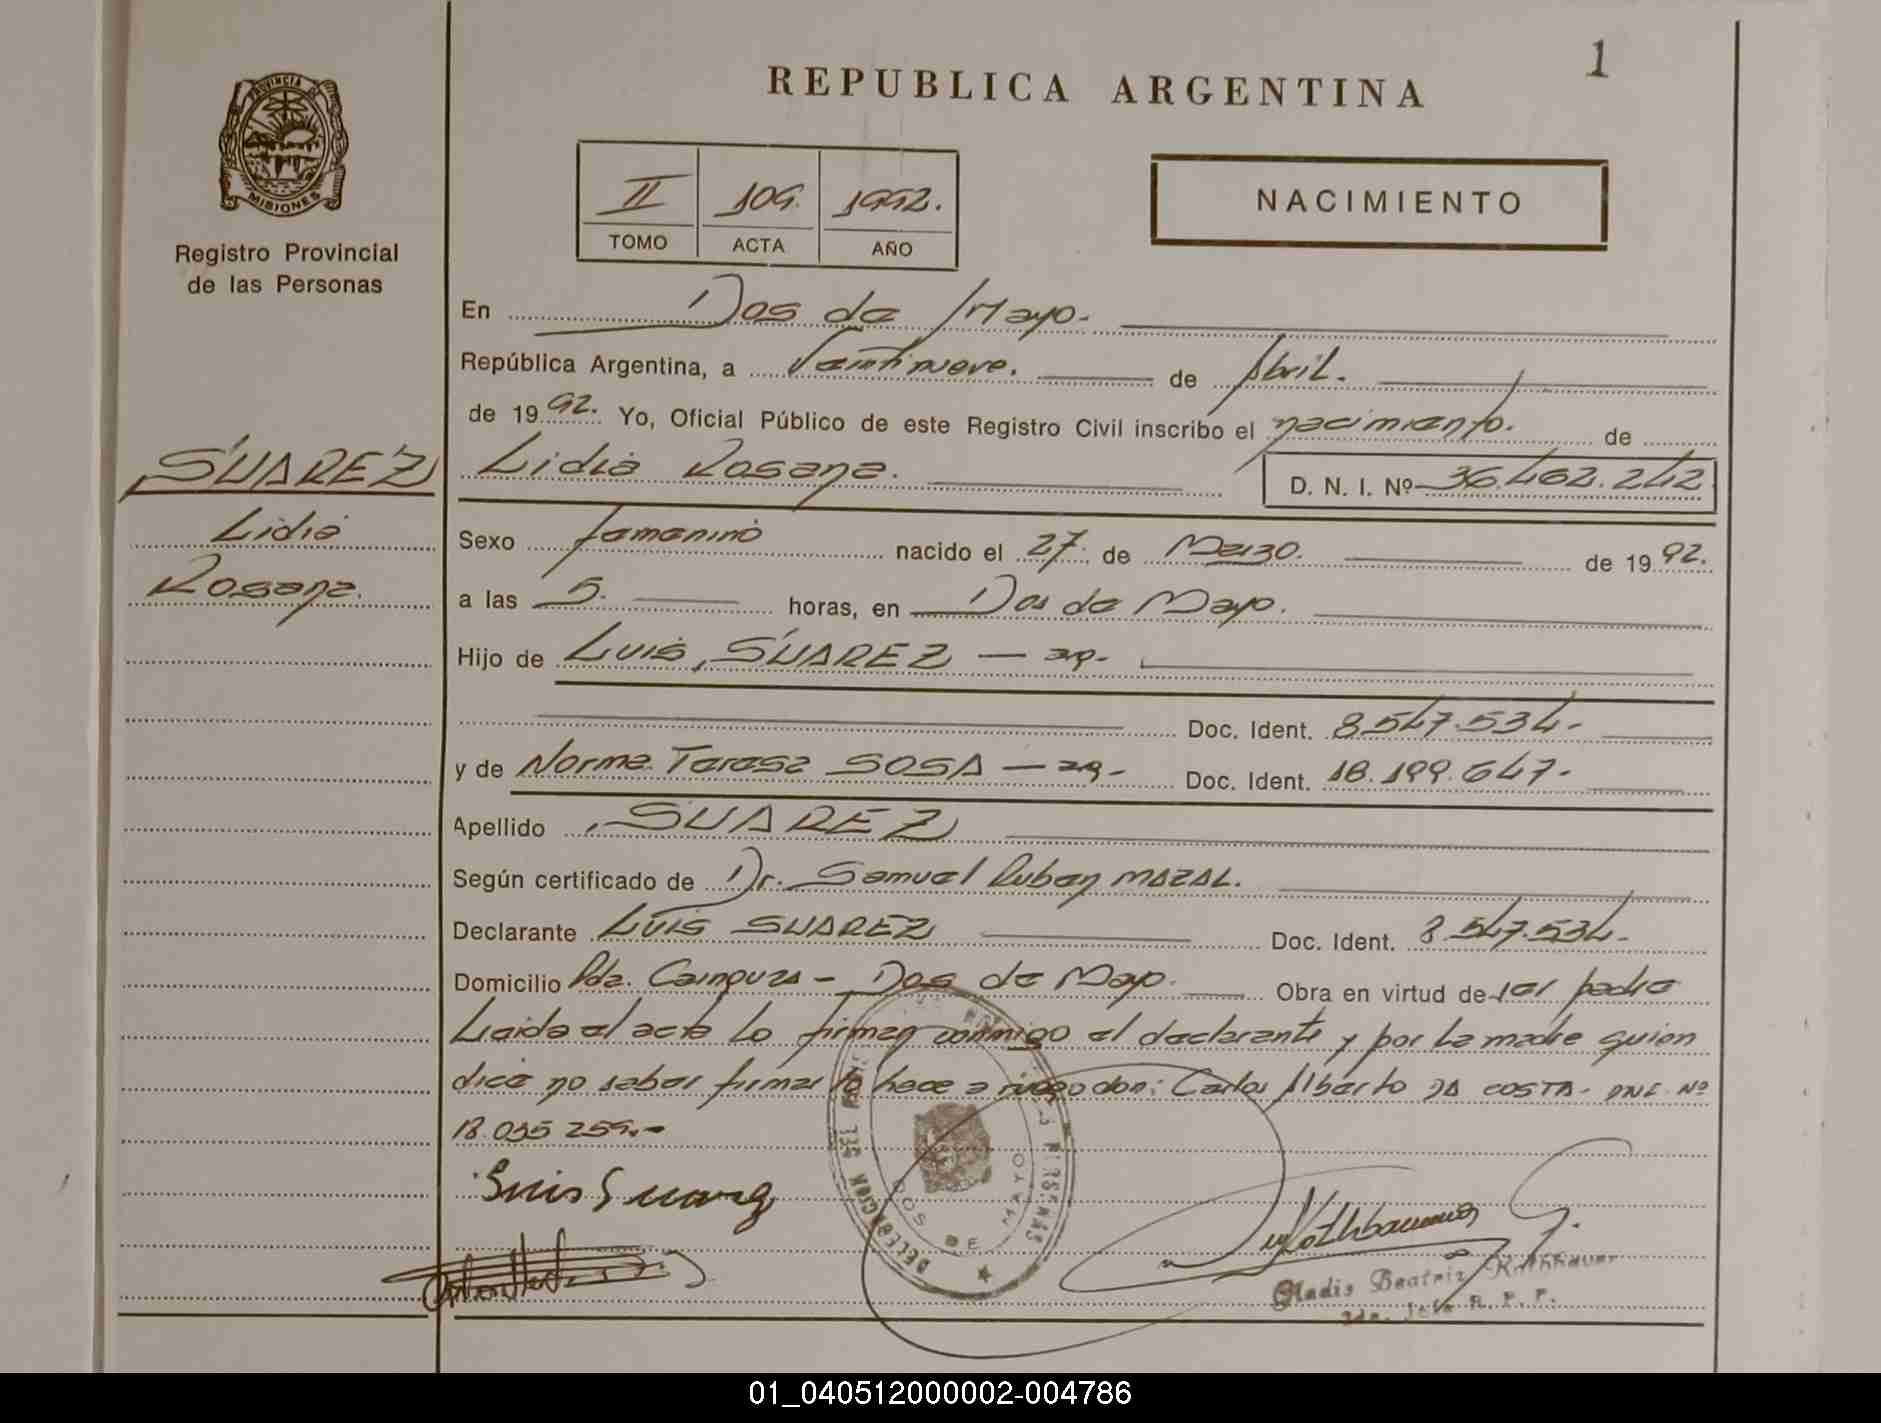 1
REPUBLICA ARGENTINA
PROVINCIA DE
MISIONES
Registro Provincial
de las Personas
II 109. 1992.
TOMO ACTA AÑO
NACIMIENTO
En Dos de Mayo.
República Argentina, a Veintinueve. de Abril.
de 1992. Yo, Oficial Público de este Registro Civil inscribo el nacimiento. de
SUAREZ
Lidia Rosana.
D. N. I. Nº 36.462.242
Lidia
Rosana.
Sexo femenino nacido el 27. de Marzo. de 1992.
a las 5. horas, en Dos de Mayo.
Hijo de Luis SUAREZ — ar.
Doc. Ident. 8.547.534-
y de Norma Teresa SOSA — ar- Doc. Ident. 18.199.647-
Apellido SUAREZ
Según certificado de Dr. Samuel Ruben MAZAL.
Declarante Luis SUAREZ Doc. Ident. 8.547.534-
Domicilio Pda. - Dos de Mayo. Obra en virtud de ser padre
Leida el acta lo firman conmigo el declarante y por la madre quien
dice no saber firmar lo hace a ruego don: Carlos Alberto DA COSTA- DNI. Nº
18.035 259.-
Luis Suarez
DELEGACION
DOS DE MAYO
Gladis Beatriz